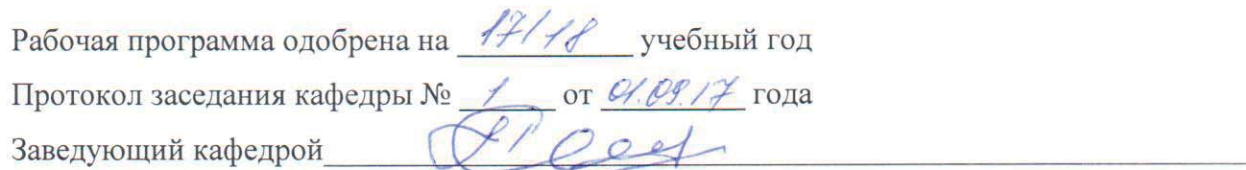 Рабочая программа одобрена на 17/18 учебный год
Протокол заседания кафедры № 1 от 01.09.17 года
Заведующий кафедрой